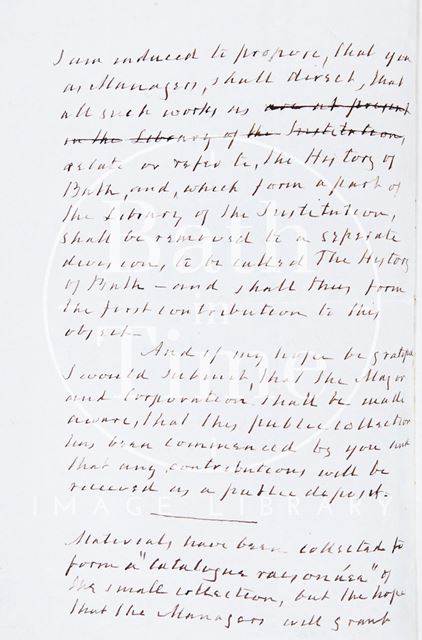 I am induced to propose, that you
as Managers, shall direct, that
all such works as are at present
in the Library of the Institution,
relate or refer to, the History of
Bath, and, which form a part of
the Library of the Institution,
shall be removed to a seperate
division, to be called The History
of Bath – and shall thus form
the first contribution to this
object –
And if my hopes be gratified
I would submit, that the Mayor
and Corporation shall be made
aware, that this public collection
has been commenced by you and
that any contributions will be
received as a public deposit.
Materials have been collected to
form a "Catalogue raisonnée" of
the small collection, but the hope
that the Managers will grant
Bath
in
Time
IMAGE LIBRARY